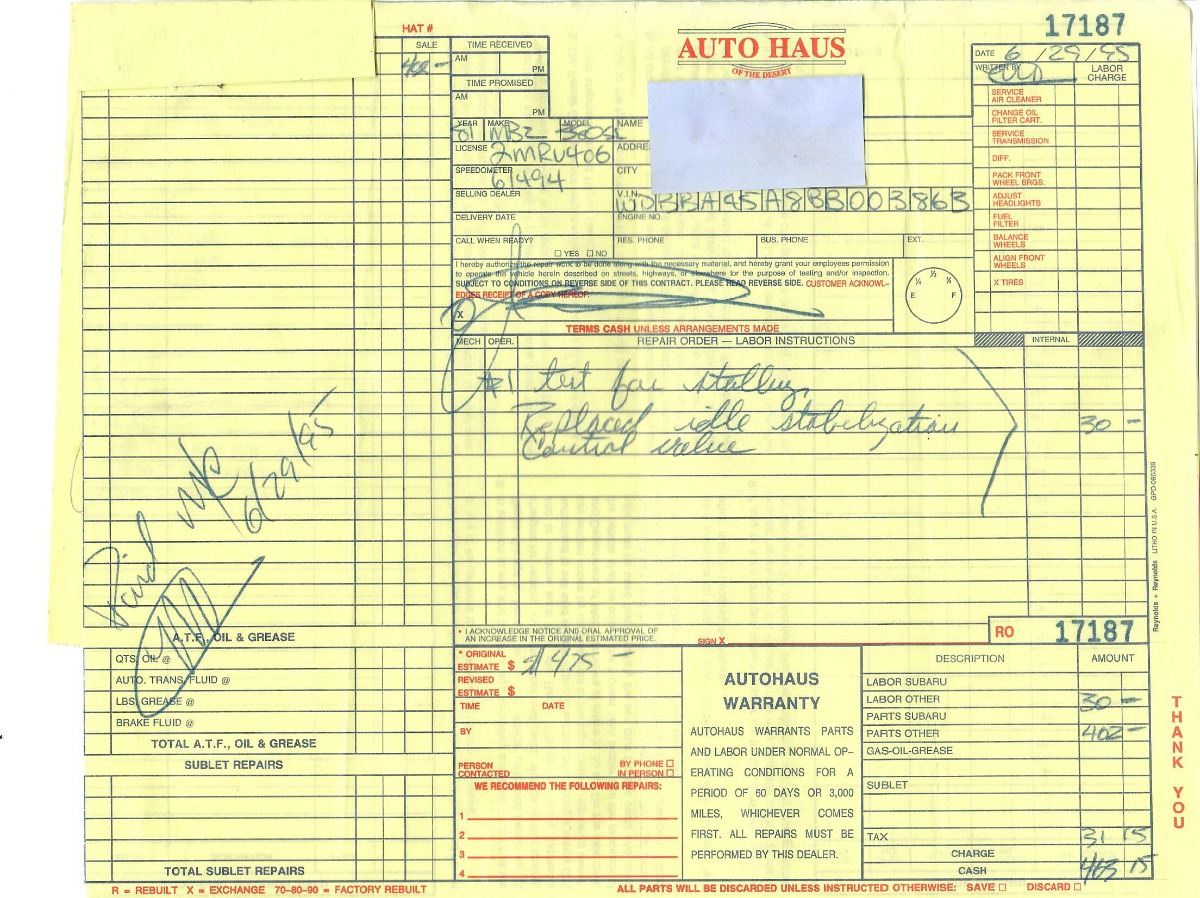 HAT #
17187
AUTO HAUS
OF THE DESERT
SALE
402 -
TIME RECEIVED
AM
PM
TIME PROMISED
AM
PM
DATE 6/29/95
WRITTEN BY
LABOR CHARGE
SERVICE AIR CLEANER
CHANGE OIL FILTER CART.
SERVICE TRANSMISSION
DIFF.
PACK FRONT WHEEL BRGS.
ADJUST HEADLIGHTS
FUEL FILTER
BALANCE WHEELS
ALIGN FRONT WHEELS
X TIRES
YEAR 81 MAKE MBZ MODEL 380SL
NAME
LICENSE 2MRU406
ADDRE
SPEEDOMETER 61494
CITY
SELLING DEALER
V.I.N. WDBBA45A8BB003863
DELIVERY DATE
ENGINE NO.
CALL WHEN READY?
☐ YES ☐ NO
RES. PHONE
BUS. PHONE
EXT.
I hereby authorize the repair work to be done along with the necessary material, and hereby grant your employees permission
to operate the vehicle herein described on streets, highways, or elsewhere for the purpose of testing and/or inspection.
SUBJECT TO CONDITIONS ON REVERSE SIDE OF THIS CONTRACT. PLEASE READ REVERSE SIDE. CUSTOMER ACKNOWL-
EDGES RECEIPT OF A COPY HEREOF.
X
TERMS CASH UNLESS ARRANGEMENTS MADE
E ¼ ½ ¾ F
MECH OPER. REPAIR ORDER — LABOR INSTRUCTIONS
INTERNAL
#1 test for stalling
Replaced idle stabilization 30 -
Control valve
Paid
6/29/95
Reynolds + Reynolds LITHO IN U.S.A.
* I ACKNOWLEDGE NOTICE AND ORAL APPROVAL OF
AN INCREASE IN THE ORIGINAL ESTIMATED PRICE.
SIGN X
RO 17187
A.T.F., OIL & GREASE
QTS. OIL @
AUTO. TRANS. FLUID @
LBS. GREASE @
BRAKE FLUID @
TOTAL A.T.F., OIL & GREASE
SUBLET REPAIRS
TOTAL SUBLET REPAIRS
* ORIGINAL ESTIMATE $ $475 -
REVISED ESTIMATE $
TIME DATE
BY
PERSON CONTACTED
BY PHONE ☐
IN PERSON ☐
WE RECOMMEND THE FOLLOWING REPAIRS:
1
2
3
4
AUTOHAUS
WARRANTY
AUTOHAUS WARRANTS PARTS
AND LABOR UNDER NORMAL OP-
ERATING CONDITIONS FOR A
PERIOD OF 60 DAYS OR 3,000
MILES, WHICHEVER COMES
FIRST. ALL REPAIRS MUST BE
PERFORMED BY THIS DEALER.
DESCRIPTION AMOUNT
LABOR SUBARU
LABOR OTHER 30 -
PARTS SUBARU
PARTS OTHER 402 -
GAS-OIL-GREASE
SUBLET
TAX 31 15
CHARGE
CASH 463 15
THANK YOU
R = REBUILT X = EXCHANGE 70-80-90 = FACTORY REBUILT
ALL PARTS WILL BE DISCARDED UNLESS INSTRUCTED OTHERWISE: SAVE ☐ DISCARD ☐